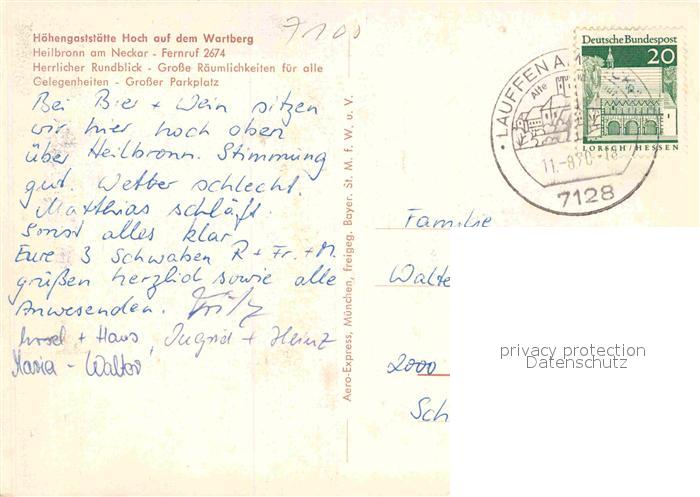 Höhengaststätte Hoch auf dem Wartberg
Heilbronn am Neckar - Fernruf 2674
Herrlicher Rundblick - Große Räumlichkeiten für alle
Gelegenheiten - Großer Parkplatz
7100
Bei Bier + Wein sitzen
wir hier hoch oben
über Heilbronn. Stimmung
gut. Wetter schlecht.
Matthias schläft.
Sonst alles klar
Eure 3 Schwaben R + Fr. + M.
grüßen herzlich sowie alle
Anwesenden. Fritz
+ Hans, Ingrid + Heinz
Maria - Walter
Aero-Express, München, freigeg. Bayer. St. M. f. W. u. V.
LAUFFEN A.
Alte
11.-8.70.-18
7128
Deutsche Bundespost
20
LORSCH/HESSEN
Familie
Walte
2000
Sch
privacy protection
Datenschutz